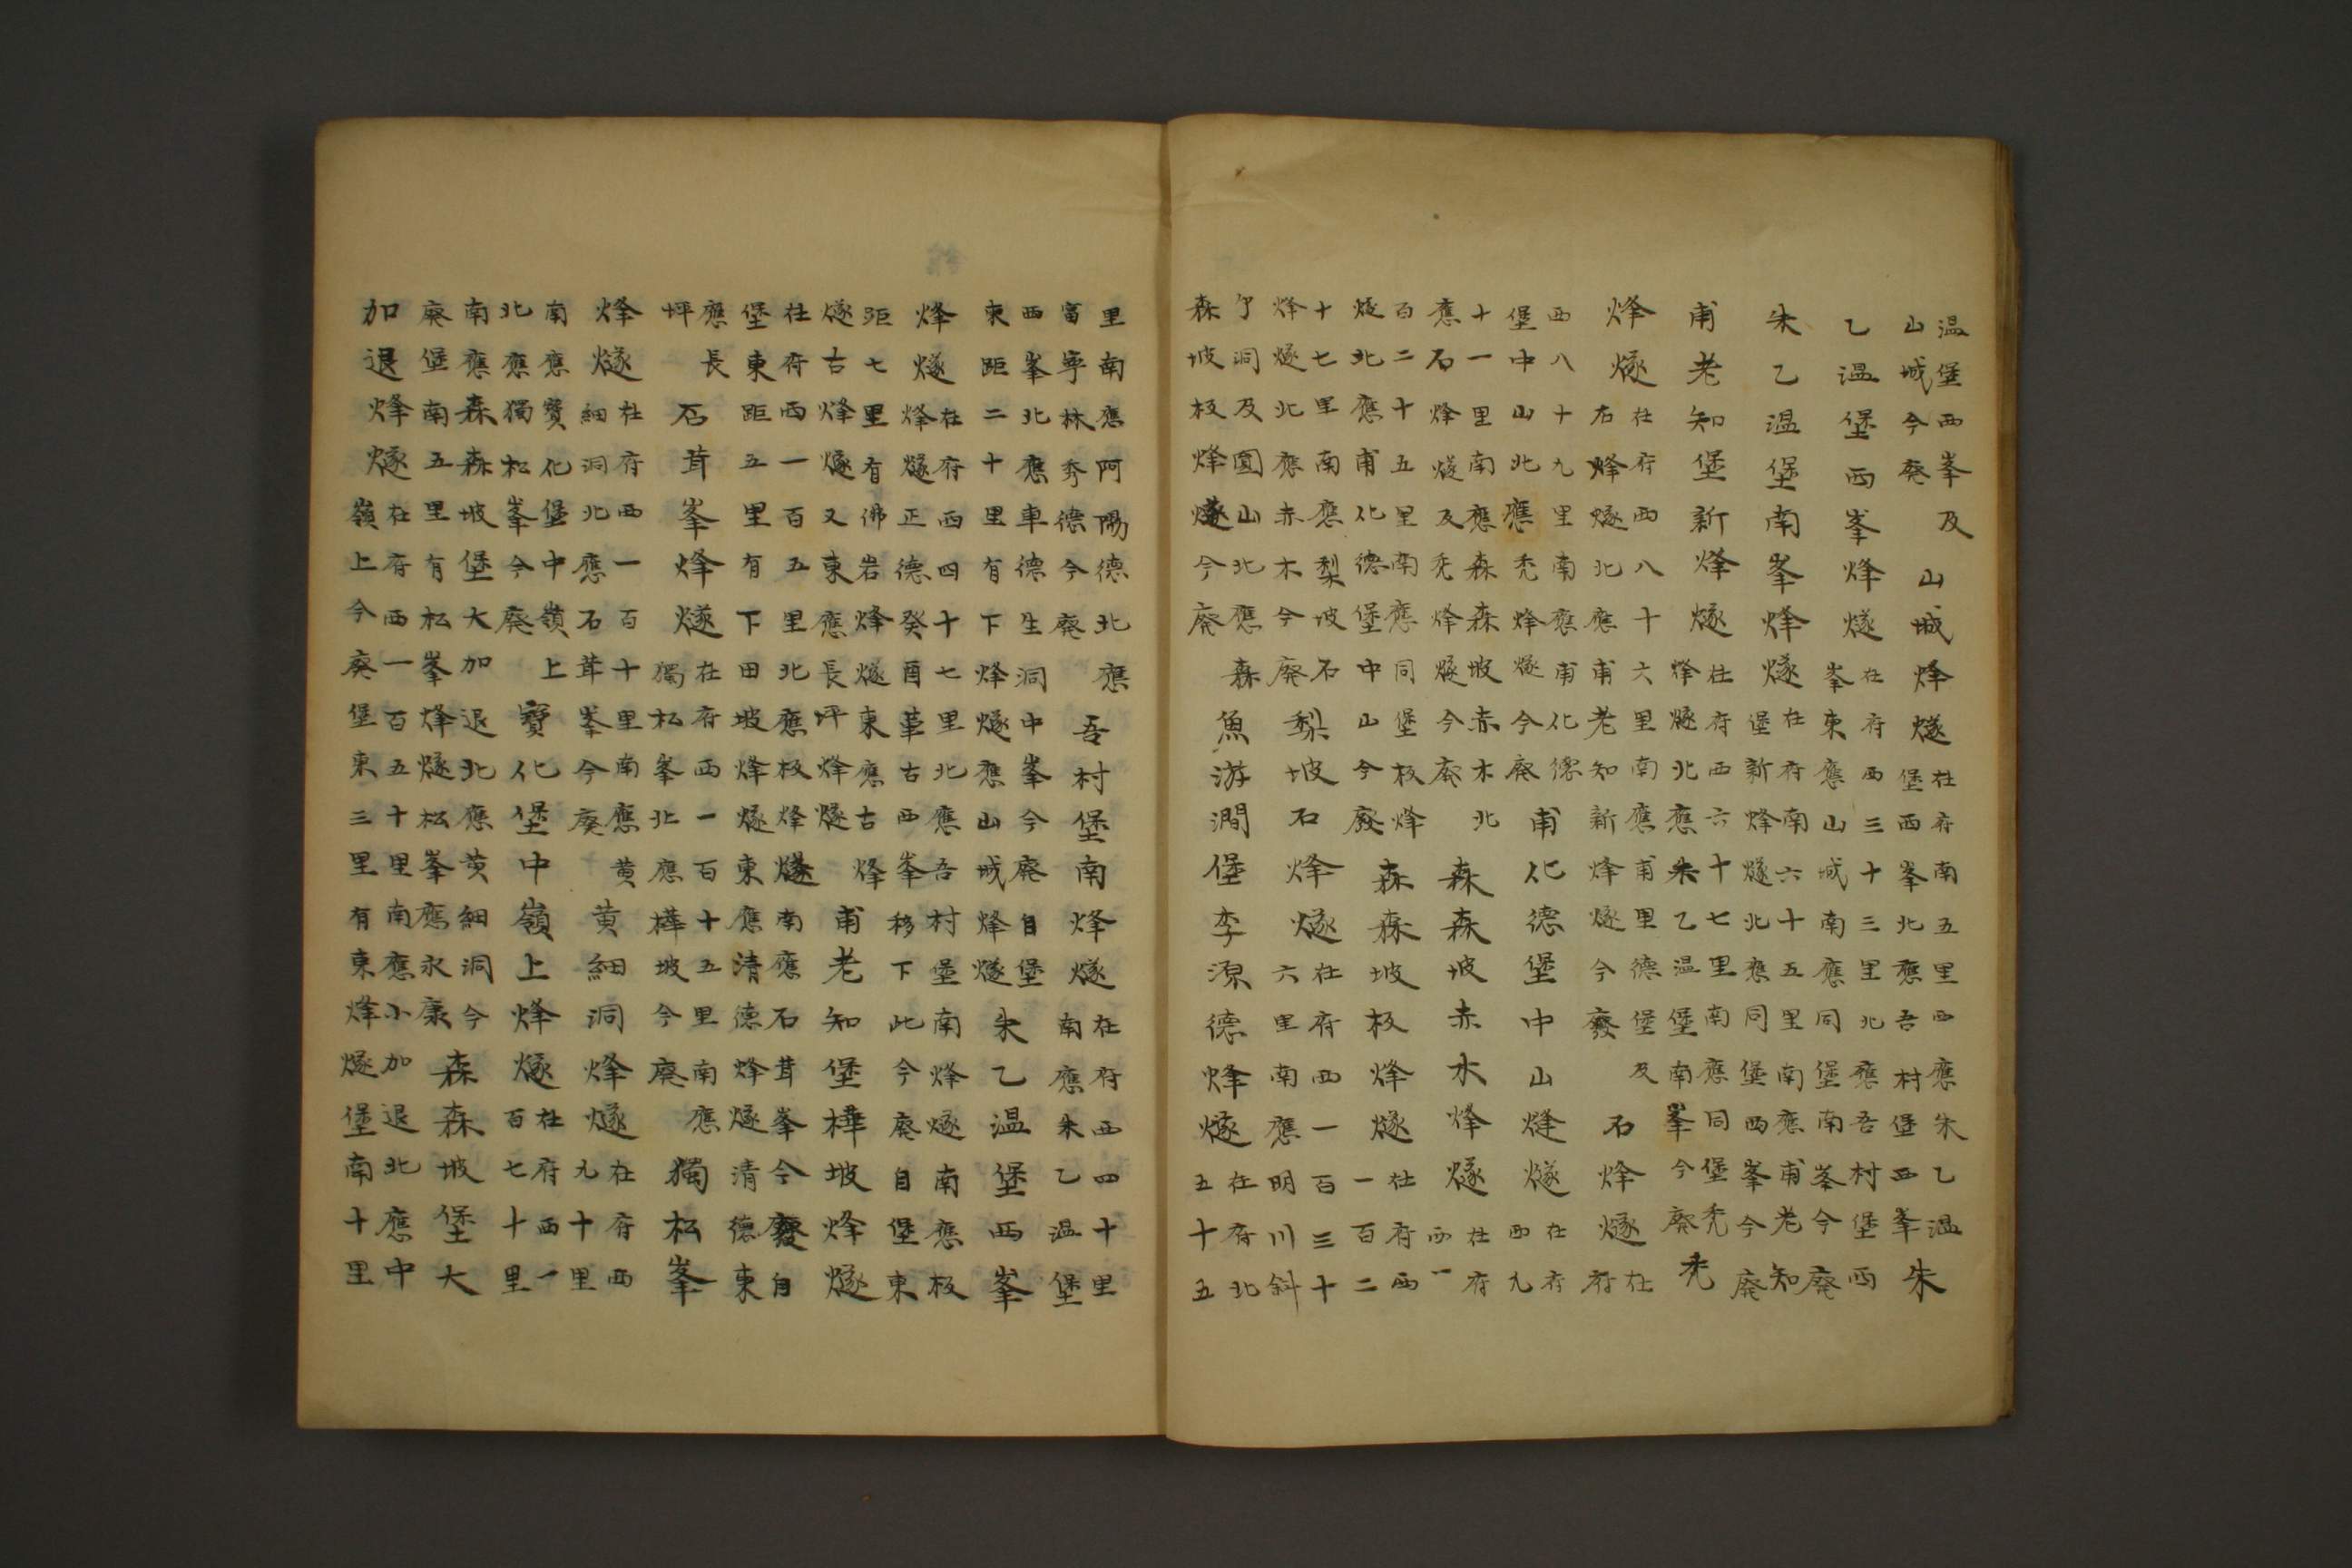 温堡西峯及
山城今廢
山城烽燧
在府南五里西應朱乙温
堡西峯北應吾村堡西峯
朱
乙温堡西峯烽燧
在府西三十三里北應吾村堡西
峯東應山城南應同堡南峯今廢
朱乙温堡南峯烽燧
在府南六十五里南應甫老知
堡新烽燧北應同堡西峯今廢
甫老知堡新烽燧
在府西六十七里南應同堡禿
烽燧北應朱乙温堡南峯今廢
禿
烽燧
在府西八十六里南應甫里德堡及
右烽燧北應甫老知新烽燧今廢
石烽燧
在
府
西八十九里南應甫化德
堡中山北應禿烽燧今廢
甫化德堡中山烽燧
在府
西九
十一里南應森森坡赤木北
應石烽燧及禿烽燧今廢
森森坡赤木烽燧
在府
西一
百二十五里南應同堡板烽
燧北應甫化德堡中山今廢
森森坡板烽燧
在府西
一百二
十七里南應梨坡石
烽燧北應赤木今廢
梨坡石烽燧
在府西一百三十
六里南應明川斜
亇洞及圓山北應
森坡板烽燧今廢
森魚游澗堡李源德烽燧
在府北
五十五
里南應阿陽德北應
富寧林秀德今廢
吾村堡南烽燧
在府西四十里
南應朱乙温堡
西峯北應車德生洞中峯今廢自堡
東距二十里有下烽燧應山城烽燧
朱乙温堡西峯
烽燧
在府西四十七里北應吾村堡南烽燧南應板
烽燧正德癸酉革古西峯移下此今廢自堡東
距七里有佛岩烽燧東應古烽
燧古烽燧又東應長坪烽燧
甫老知堡樺坡烽燧
在府西一百五里北應板烽燧南應石茸峯今廢自
堡東距五里有下田坡烽燧東應清德烽燧清德東
應長
坪
石茸峯烽燧
在府西一百十五里南應
獨松峯北應樺坡今廢
獨松峯
烽燧
在府西一百十里南應黃
細洞北應石茸峯今廢
黃細洞烽燧
在府西
九十里
南應寶化堡中嶺上
北應獨松峯今廢
寶化堡中嶺上烽燧
在府西一
百七十里
南應森森坡堡大加退北應黃細洞今
廢堡南五里有松峯烽燧松峯應永康
森森坡堡大
加退烽燧
在府西一百五十里南應小加退北應中
嶺上今廢堡東三里有東烽燧堡南十里